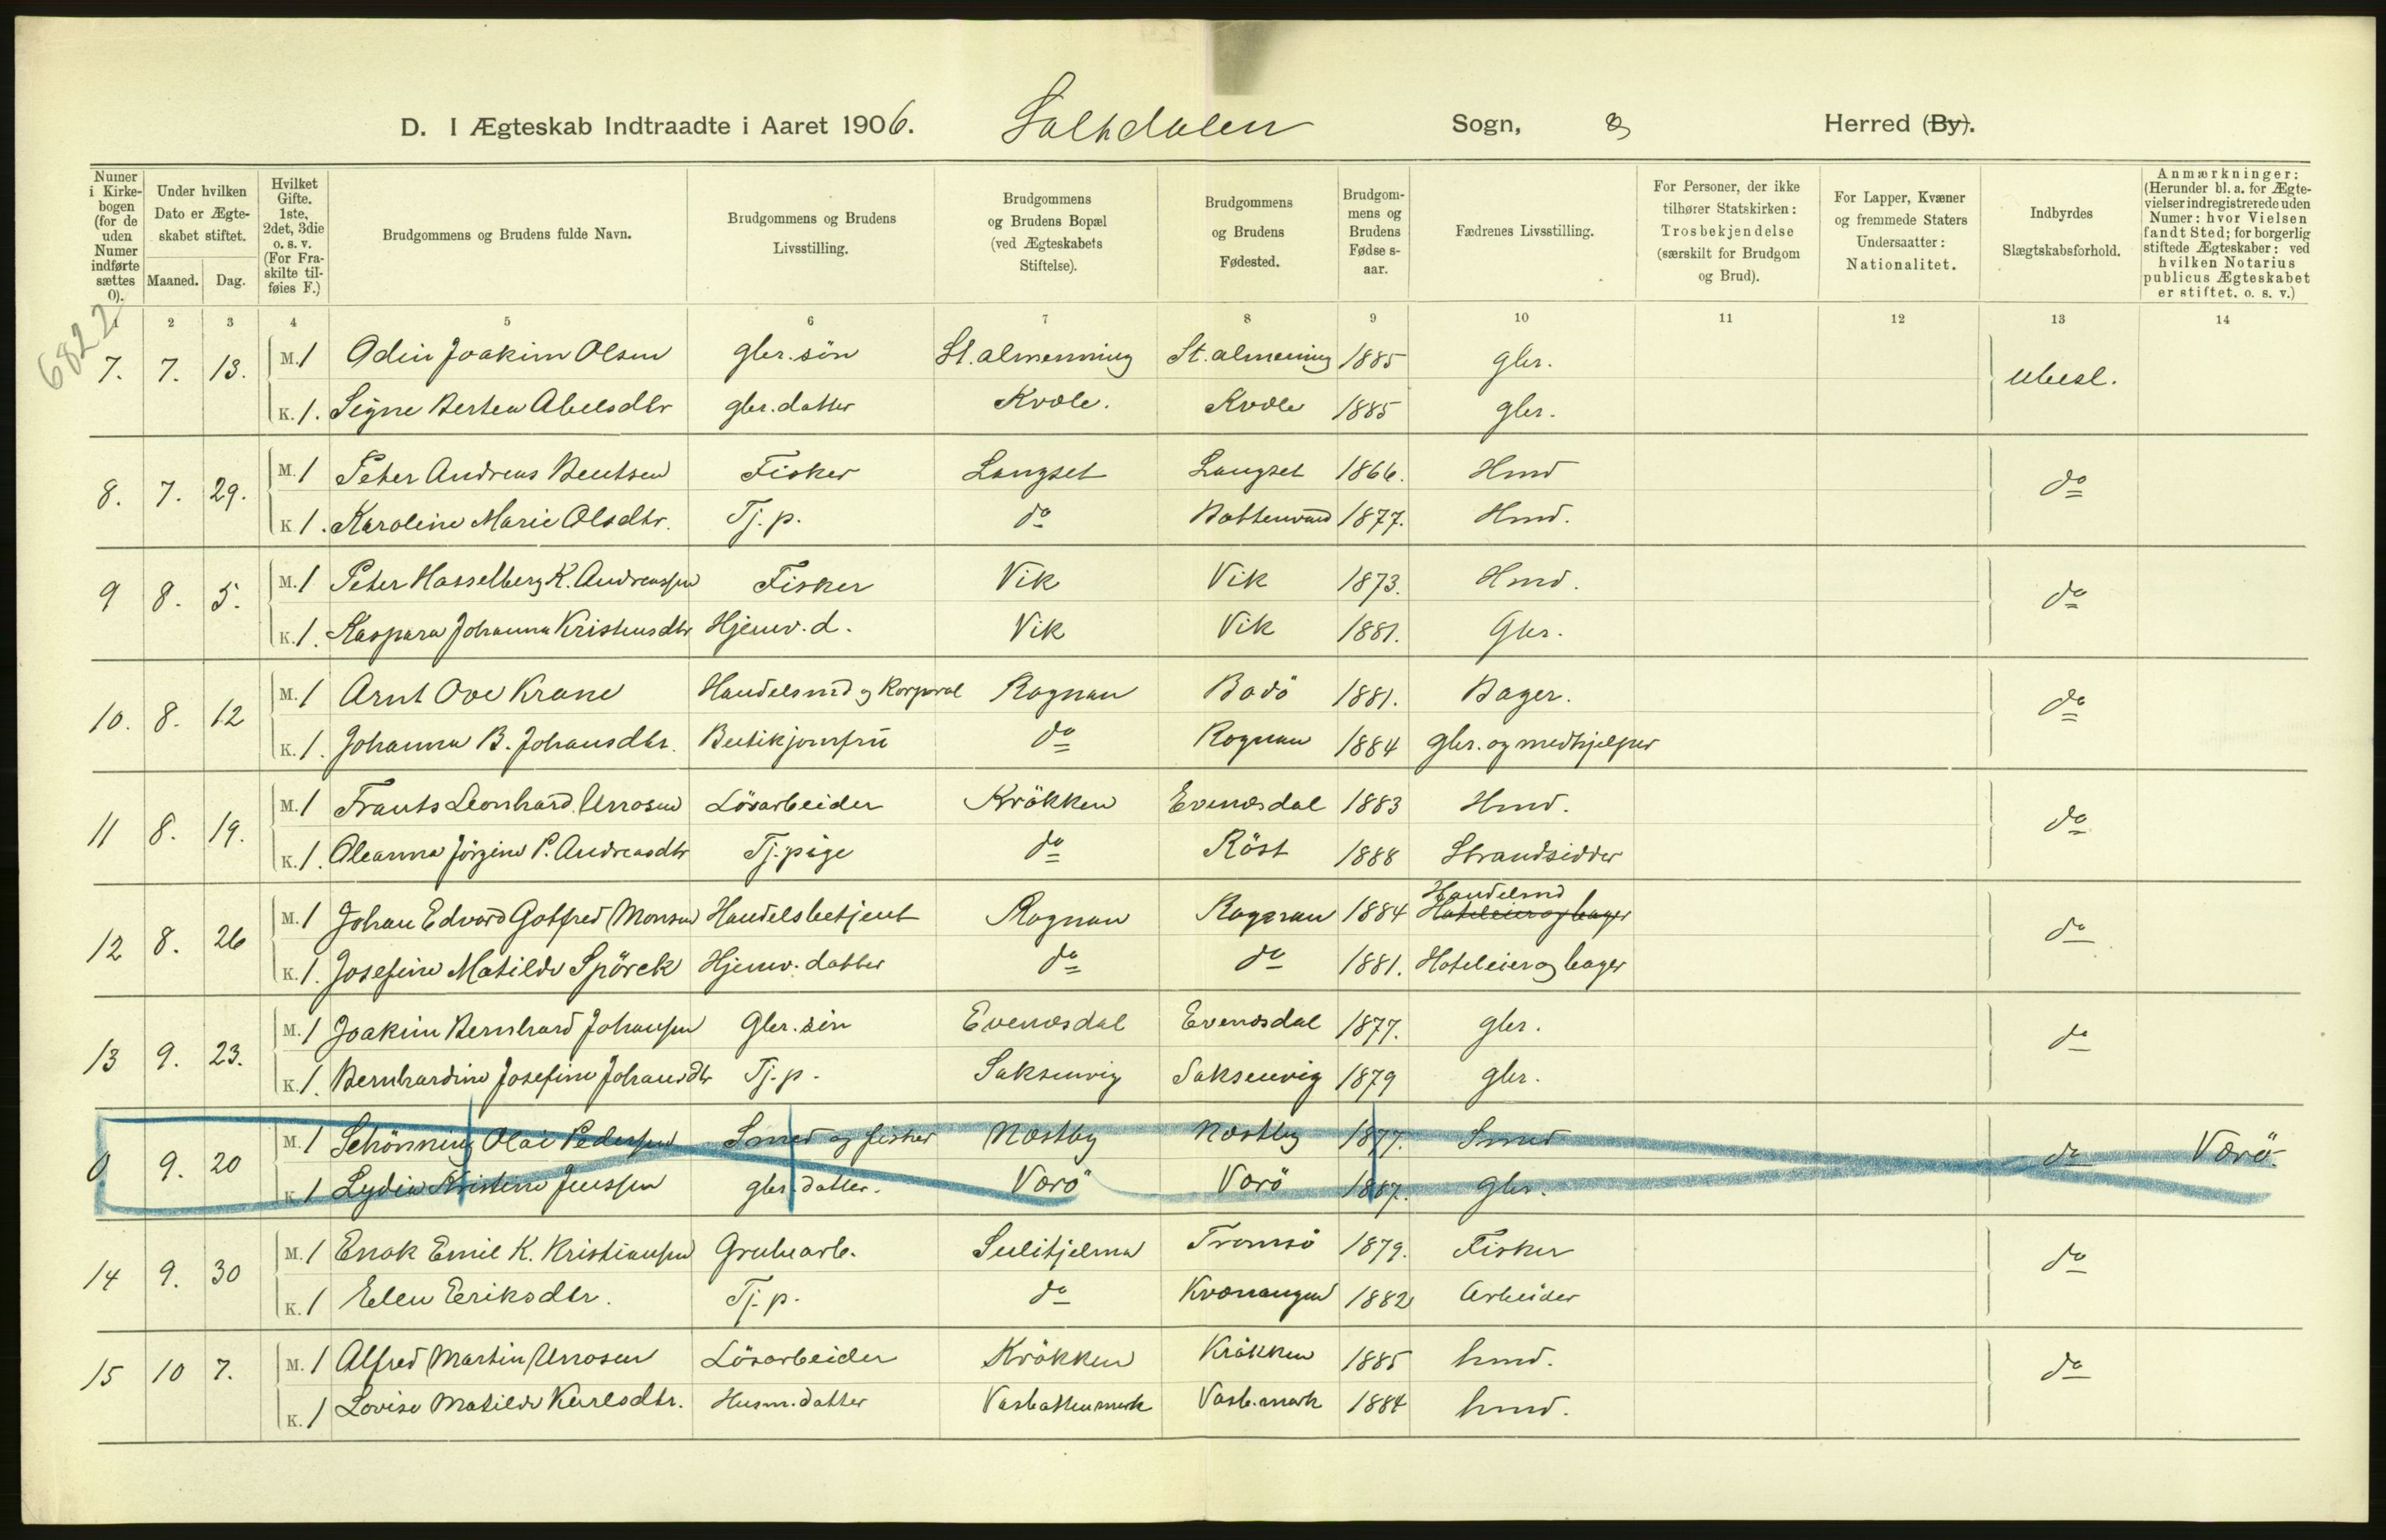 D. I Ægteskab Indtraadte i Aaret 1906. Saltdalen Sogn, Herred (By).
Numer i Kirkebogen (for de uden Numer indførte sættes 0).
Under hvilken Dato er Ægteskabet stiftet.
Maaned. Dag.
Hvilket Gifte. 1ste, 2det, 3die o. s. v. (For Fraskilte tilføies F.)
Brudgommens og Brudens fulde Navn.
Brudgommens og Brudens Livsstilling.
Brudgommens og Brudens Bopæl (ved Ægteskabets Stiftelse).
Brudgommens og Brudens Fødested.
Brudgommens og Brudens Fødse s-aar.
Fædrenes Livsstilling.
For Personer, der ikke tilhører Statskirken: Trosbekjendelse (særskilt for Brudgom og Brud).
For Lapper, Kvæner og fremmede Staters Undersaatter: Nationalitet.
Indbyrdes Slægtskabsforhold.
Anmærkninger: (Herunder bl. a. for Ægtevielser indregistrerede uden Numer: hvor Vielsen fandt Sted; for borgerlig stiftede Ægteskaber: ved hvilken Notarius publicus Ægteskabet er stiftet. o. s. v.)
1 2 3 4 5 6 7 8 9 10 11 12 13 14
6822
7. 7. 13. M. 1 Odin Joakim Olsen gbr. sön St. almenning St. almening 1885 gbr. ubesl.
K. 1. Signe Bertea Abelsdtr gbr. datter Kvæle. Kvæle 1885 gbr.
8. 7. 29. M. 1 Peter Andreas Bentsen Fisker Langset Langset 1866. Hmd do
K 1. Karoline Marie Olsdtr. Tj. p. do Bottenvand 1877. Hmd.
9 8. 5. M. 1 Peter Hasselberg K. Andreassen Fisker Vik Vik 1873. Hmd. do
K. 1. Kaspara Johanna Kristensdtr Hjemv. d. Vik Vik 1881. Gbr.
10. 8. 12 M. 1 Arnt Ove Krane Handelsmd og Korporal Rognan Bodö 1881. Bager. do
K. 1. Johanna B. Johansdtr. Butikjomfru do Rognan 1884 gbr. og medhjelper
11 8. 19. M. 1 Frants Leonhard Unosen Lösarbeider Krökken Evenesdal 1883 Hmd. do
K. 1. Oleanna Jörgine P. Andreasdtr Tj. pige do Röst 1888 Strandsidder
12 8. 26 M. 1 Johan Edvard Gotfred Monsen Handelsbetjent Rognan Rognan 1884 Handelsmd Hoteleier og bager do
K. 1. Josefine Matilde Spörck Hjemv. datter do do 1881. Hoteleier og bager
13 9. 23. M. 1 Joakim Bernhard Johansen Gbr. sön Evenesdal Evenesdal 1877. gbr. do
K. 1. Bernhardine Josefine Johansdtr Tj. p. Saksenvig Saksenvig 1879 gbr.
0 9. 20 M. 1 Schönning Olai Pedersen Smed og fisker Næstby Næstby 1877. Smed do Værö.
K 1 Lydia Kristene Jenssen gbr. datter. Værö Værö 1887. Gbr.
14 9. 30 M. 1 Enok Emil K. Kristiansen Grubearb. Sulitjelma Tromsö 1879. Fisker do
K. 1 Elen Eriksdtr. Tj. p. do Kvænangen 1882 Arbeider
15 10 7. M. 1 Alfred Martin Unosen Lösarbeider Krökken Krökken 1885 hmd. do
K. 1 Lovise Matilde Karlsdtr. Husm. datter Vasbottenmark Vasb. mark 1884 hmd.